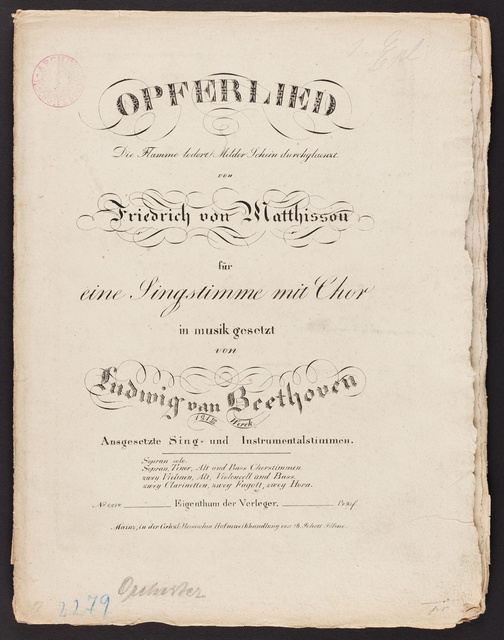 OPFERLIED
Die Flamme lodert! Milder Schein durchglaenzt.
von
Friedrich von Matthisson
für
eine Singstimme mit Chor
in musik gesetzt
von
Ludwig van Beethoven
121tes Werck.
Ausgesetzte Sing- und Instrumentalstimmen.
Sopran solo.
Sopran, Tenor, Alt und Bass Chorstimmen
zwey Violinen, Alt, Violoncell und Bass
zwey Clarinetten, zwey Fagott, zwey Horn.
No Eigenthum der Verleger. Pr.
Mainz, in der Hofmusikhandlung von B. Schott Söhne.
Orchester
2279